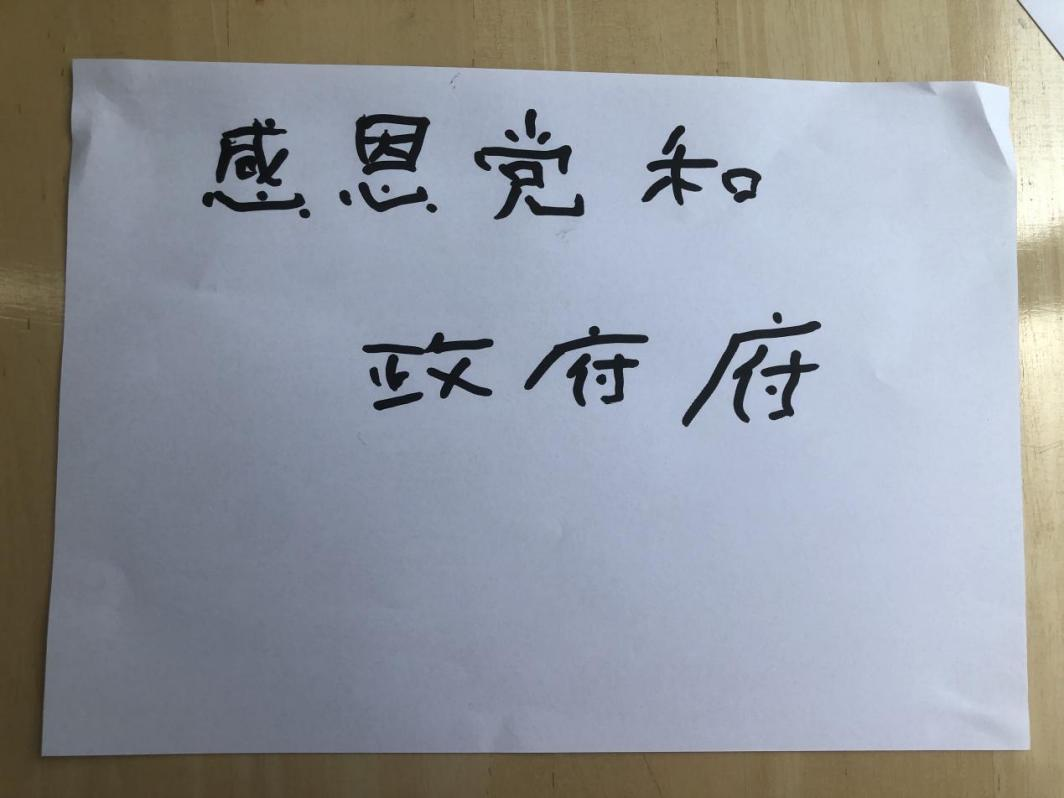 感恩党和
政府府